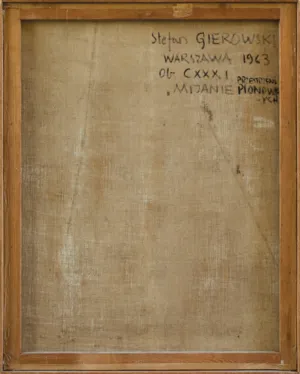 Stefan GIEROWSKI
WARSZAWA 1963
Ob CXXXI
„MIJANIE PIONOWY
-YCH